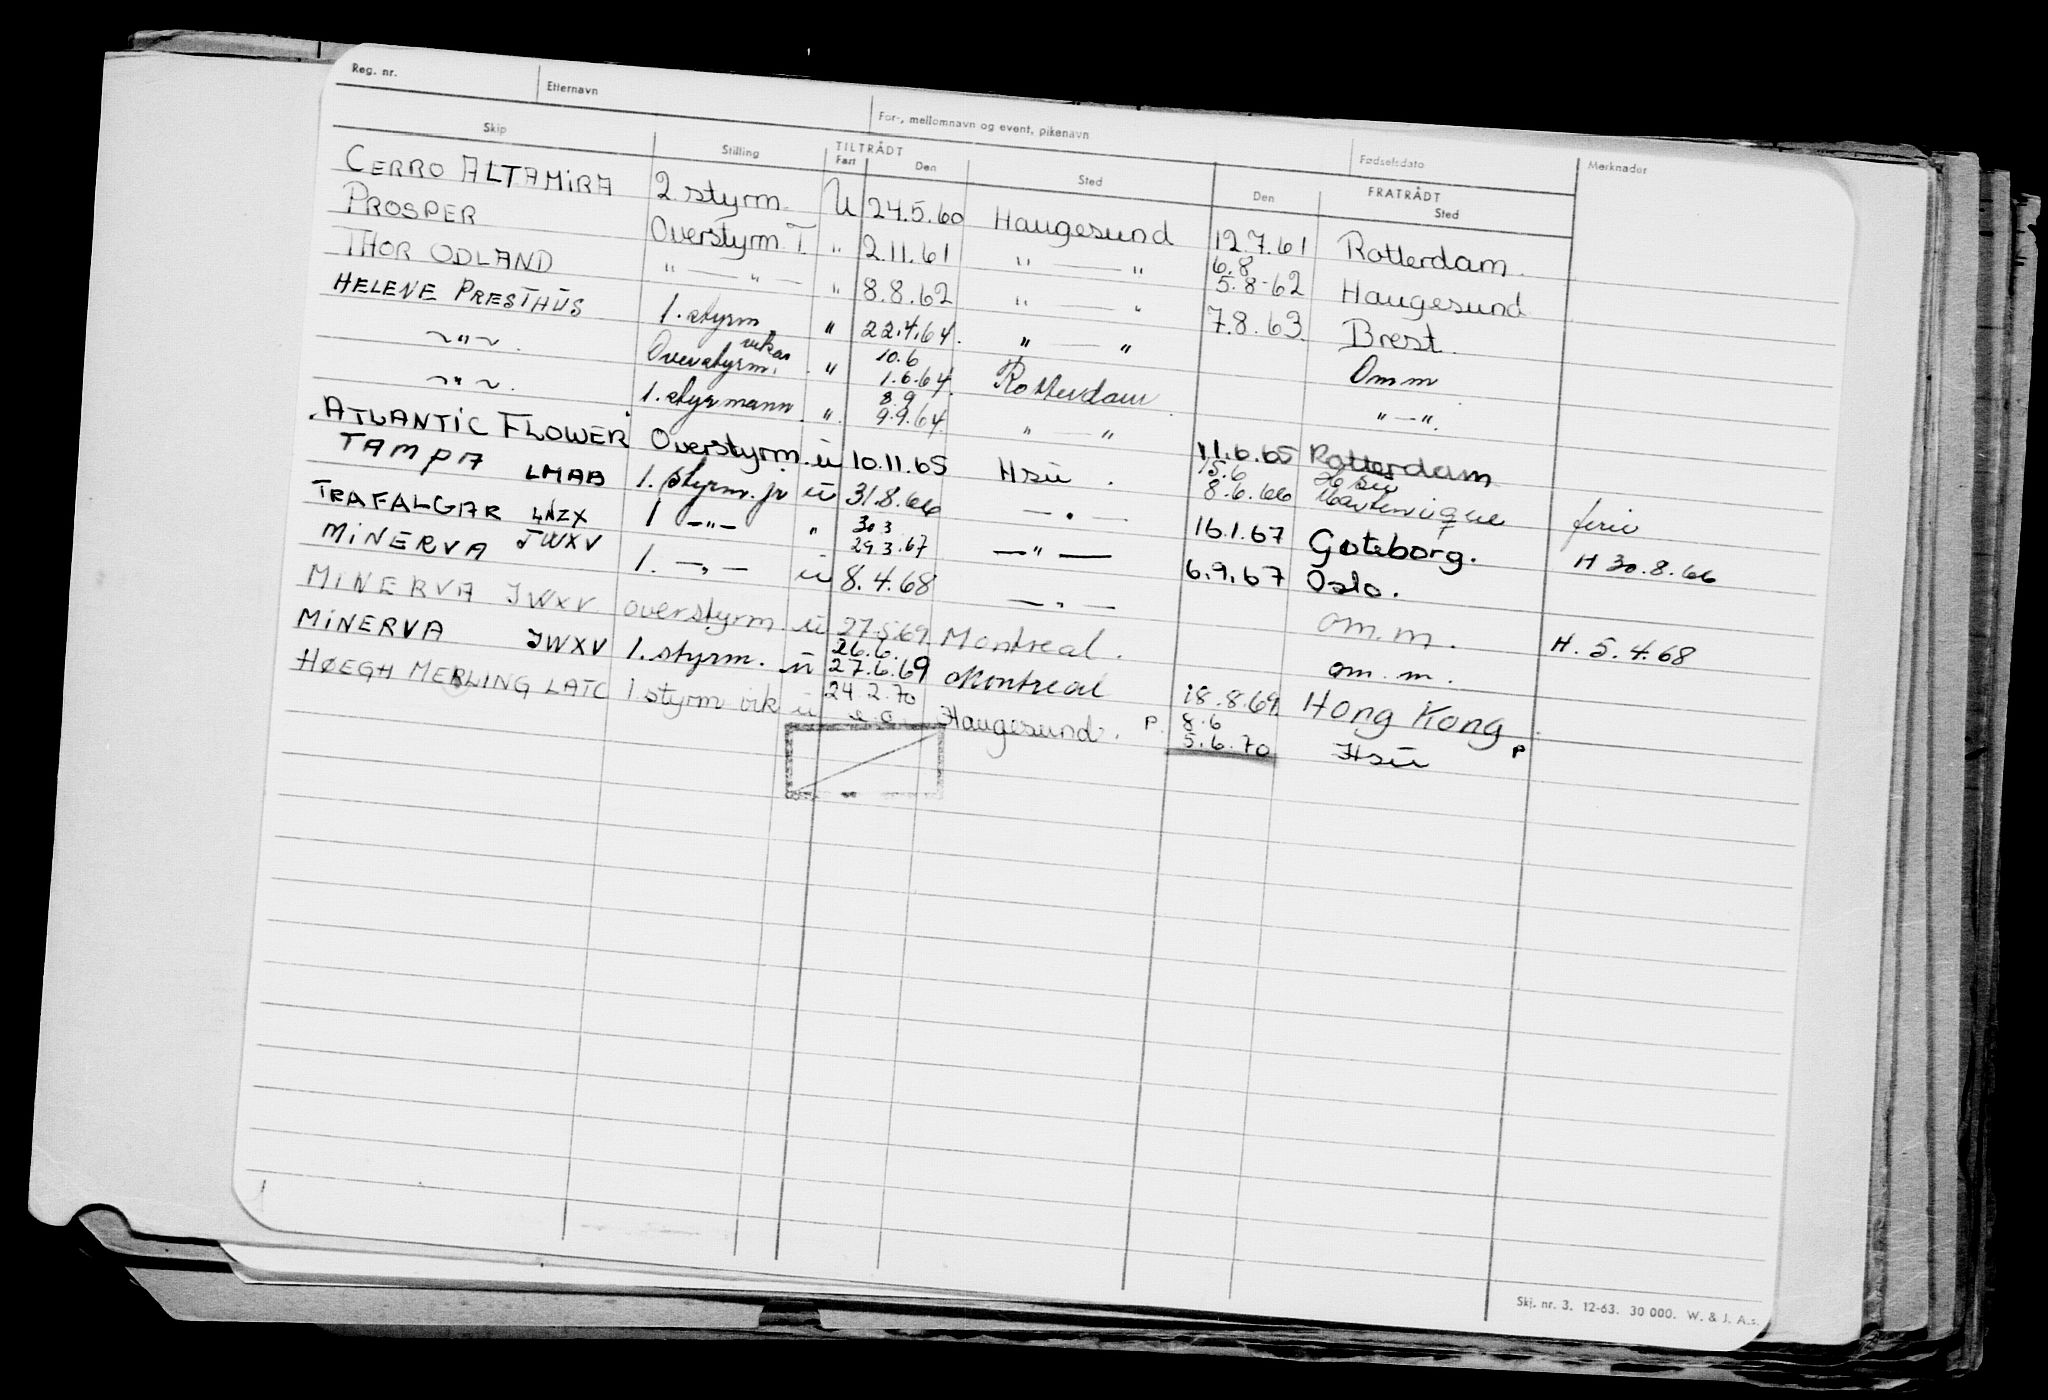 Reg. nr. Etternavn For-, mellomnavn og event. pikenavn Fødselsdato Merknader
Skip Stilling TILTRÅDT Fart Den Sted Den FRATRÅDT Sted
CERRO ALTAMIRA 2 styrm. U 24.5.60 Haugesund 12.7.61 Rotterdam.
PROSPER Overstyrm. T. " 2.11.61 " — " 6.8 5.8-62 Haugesund
THOR ODLAND " — " — " 8.8.62 " — " 7.8.63. Brest.
HELENE PRESTHUS 1. styrm. " 22.4.64. " — " Omm
~ " ~. Overstyrm. vikar " 10.6 1.6.64. Rotterdam. " — ".
~ " ~. 1. styrmann. " 8.9 9.9.64. " — " 11.6.65 Rotterdam
ATLANTIC FLOWER Overstyrm. ü 10.11.65 Hsü. 15.6 8.6.66 Hsü Martinique ferie
TAMPA LMAB 1. styrm. jr ü 31.8.66 — " — 16.1.67 Gøteborg. H 30.8.66
TRAFALGAR LNZX 1 — " — " 30.3 29.3.67 — " — 6.9.67 Oslo.
MINERVA JWXV 1. — " — ü 8.4.68 — " — om.m. H. 5.4.68
MINERVA JWXV overstyrm. ü 27.5.69. Montreal. om.m.
MINERVA JWXV 1. styrm. ü 26.6. 27.6.69 Montreal 18.8.69. Hong Kong.
HØEGH MERLING LATC 1 styrm vik ü 24.2.70 Haugesund. P. 8.6 5.6.70 Hsü P
Skj. nr. 3. 12-63. 30 000. W. & J. A.s.